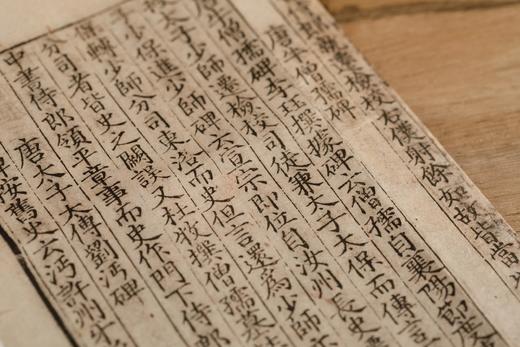 史檢校右僕射餘如故皆當
唐牛僧孺碑
唐牛僧孺碑李珏撰據碑云僧孺自襄陽節度
授太子少師還檢校司徒兼太子太保而傳言
子少保進少師碑云宣宗即位自汝州長史
轉少師分司東洛而史但言還為少師亦
分司者皆史之闕誤又杜牧撰僧孺墓
中書侍郎領平章事而史作門下侍郎
唐太子太傅劉沔碑
碑按舊史云沔許州牙